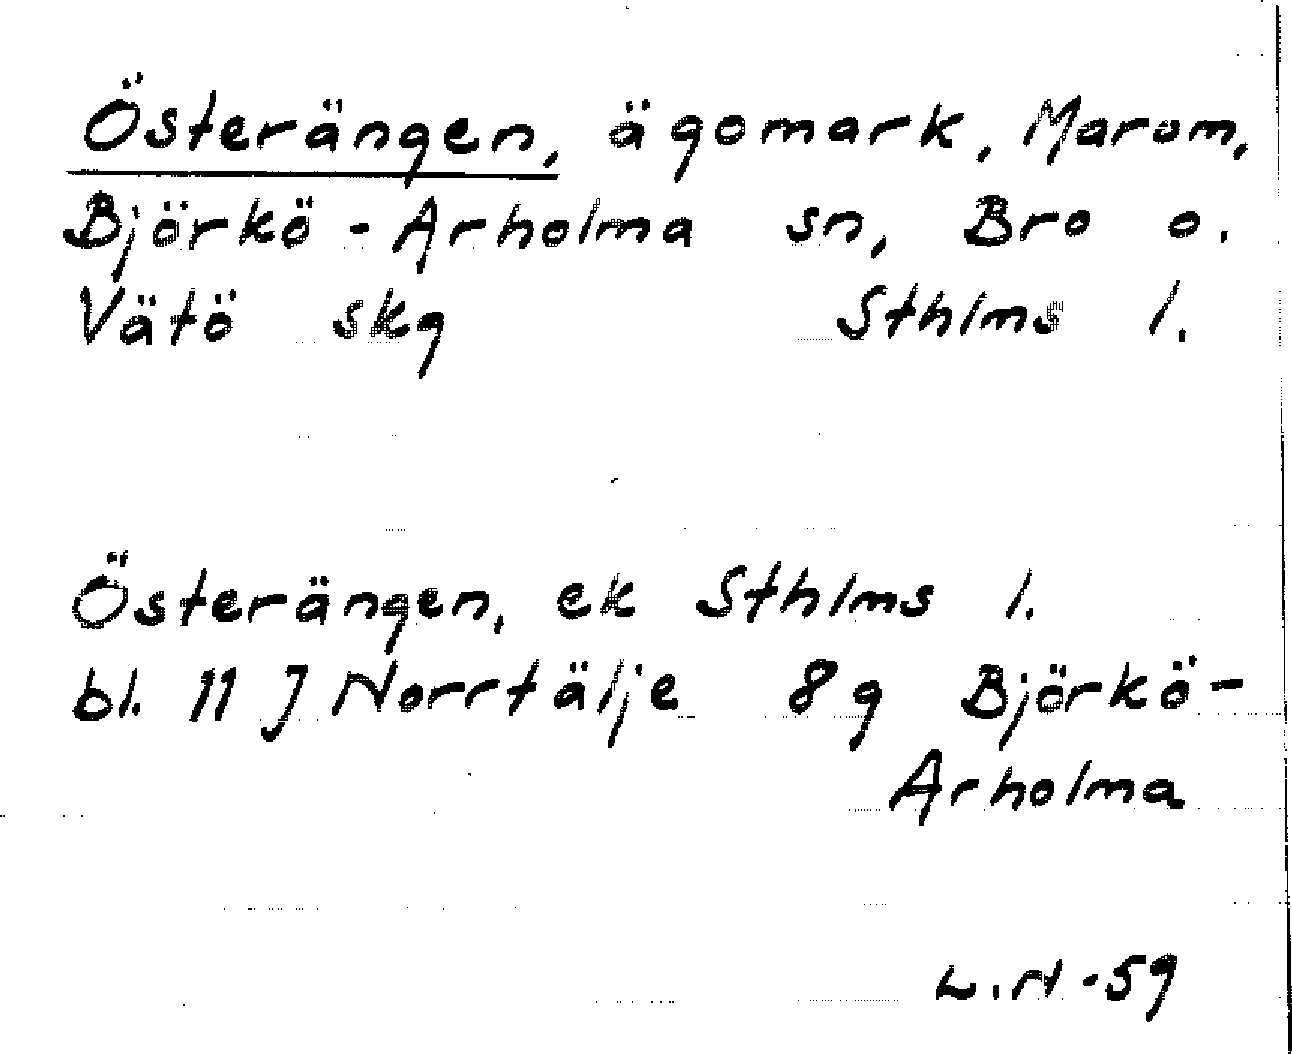 Österängen, ägomark, Marum,
Björkö-Arholma sn, Bro o.
Vätö skg Sthlms l.
Österängen, ek Sthlms l.
bl. 11 J Norrtälje 8g Björkö-
Arholma
L.N-59